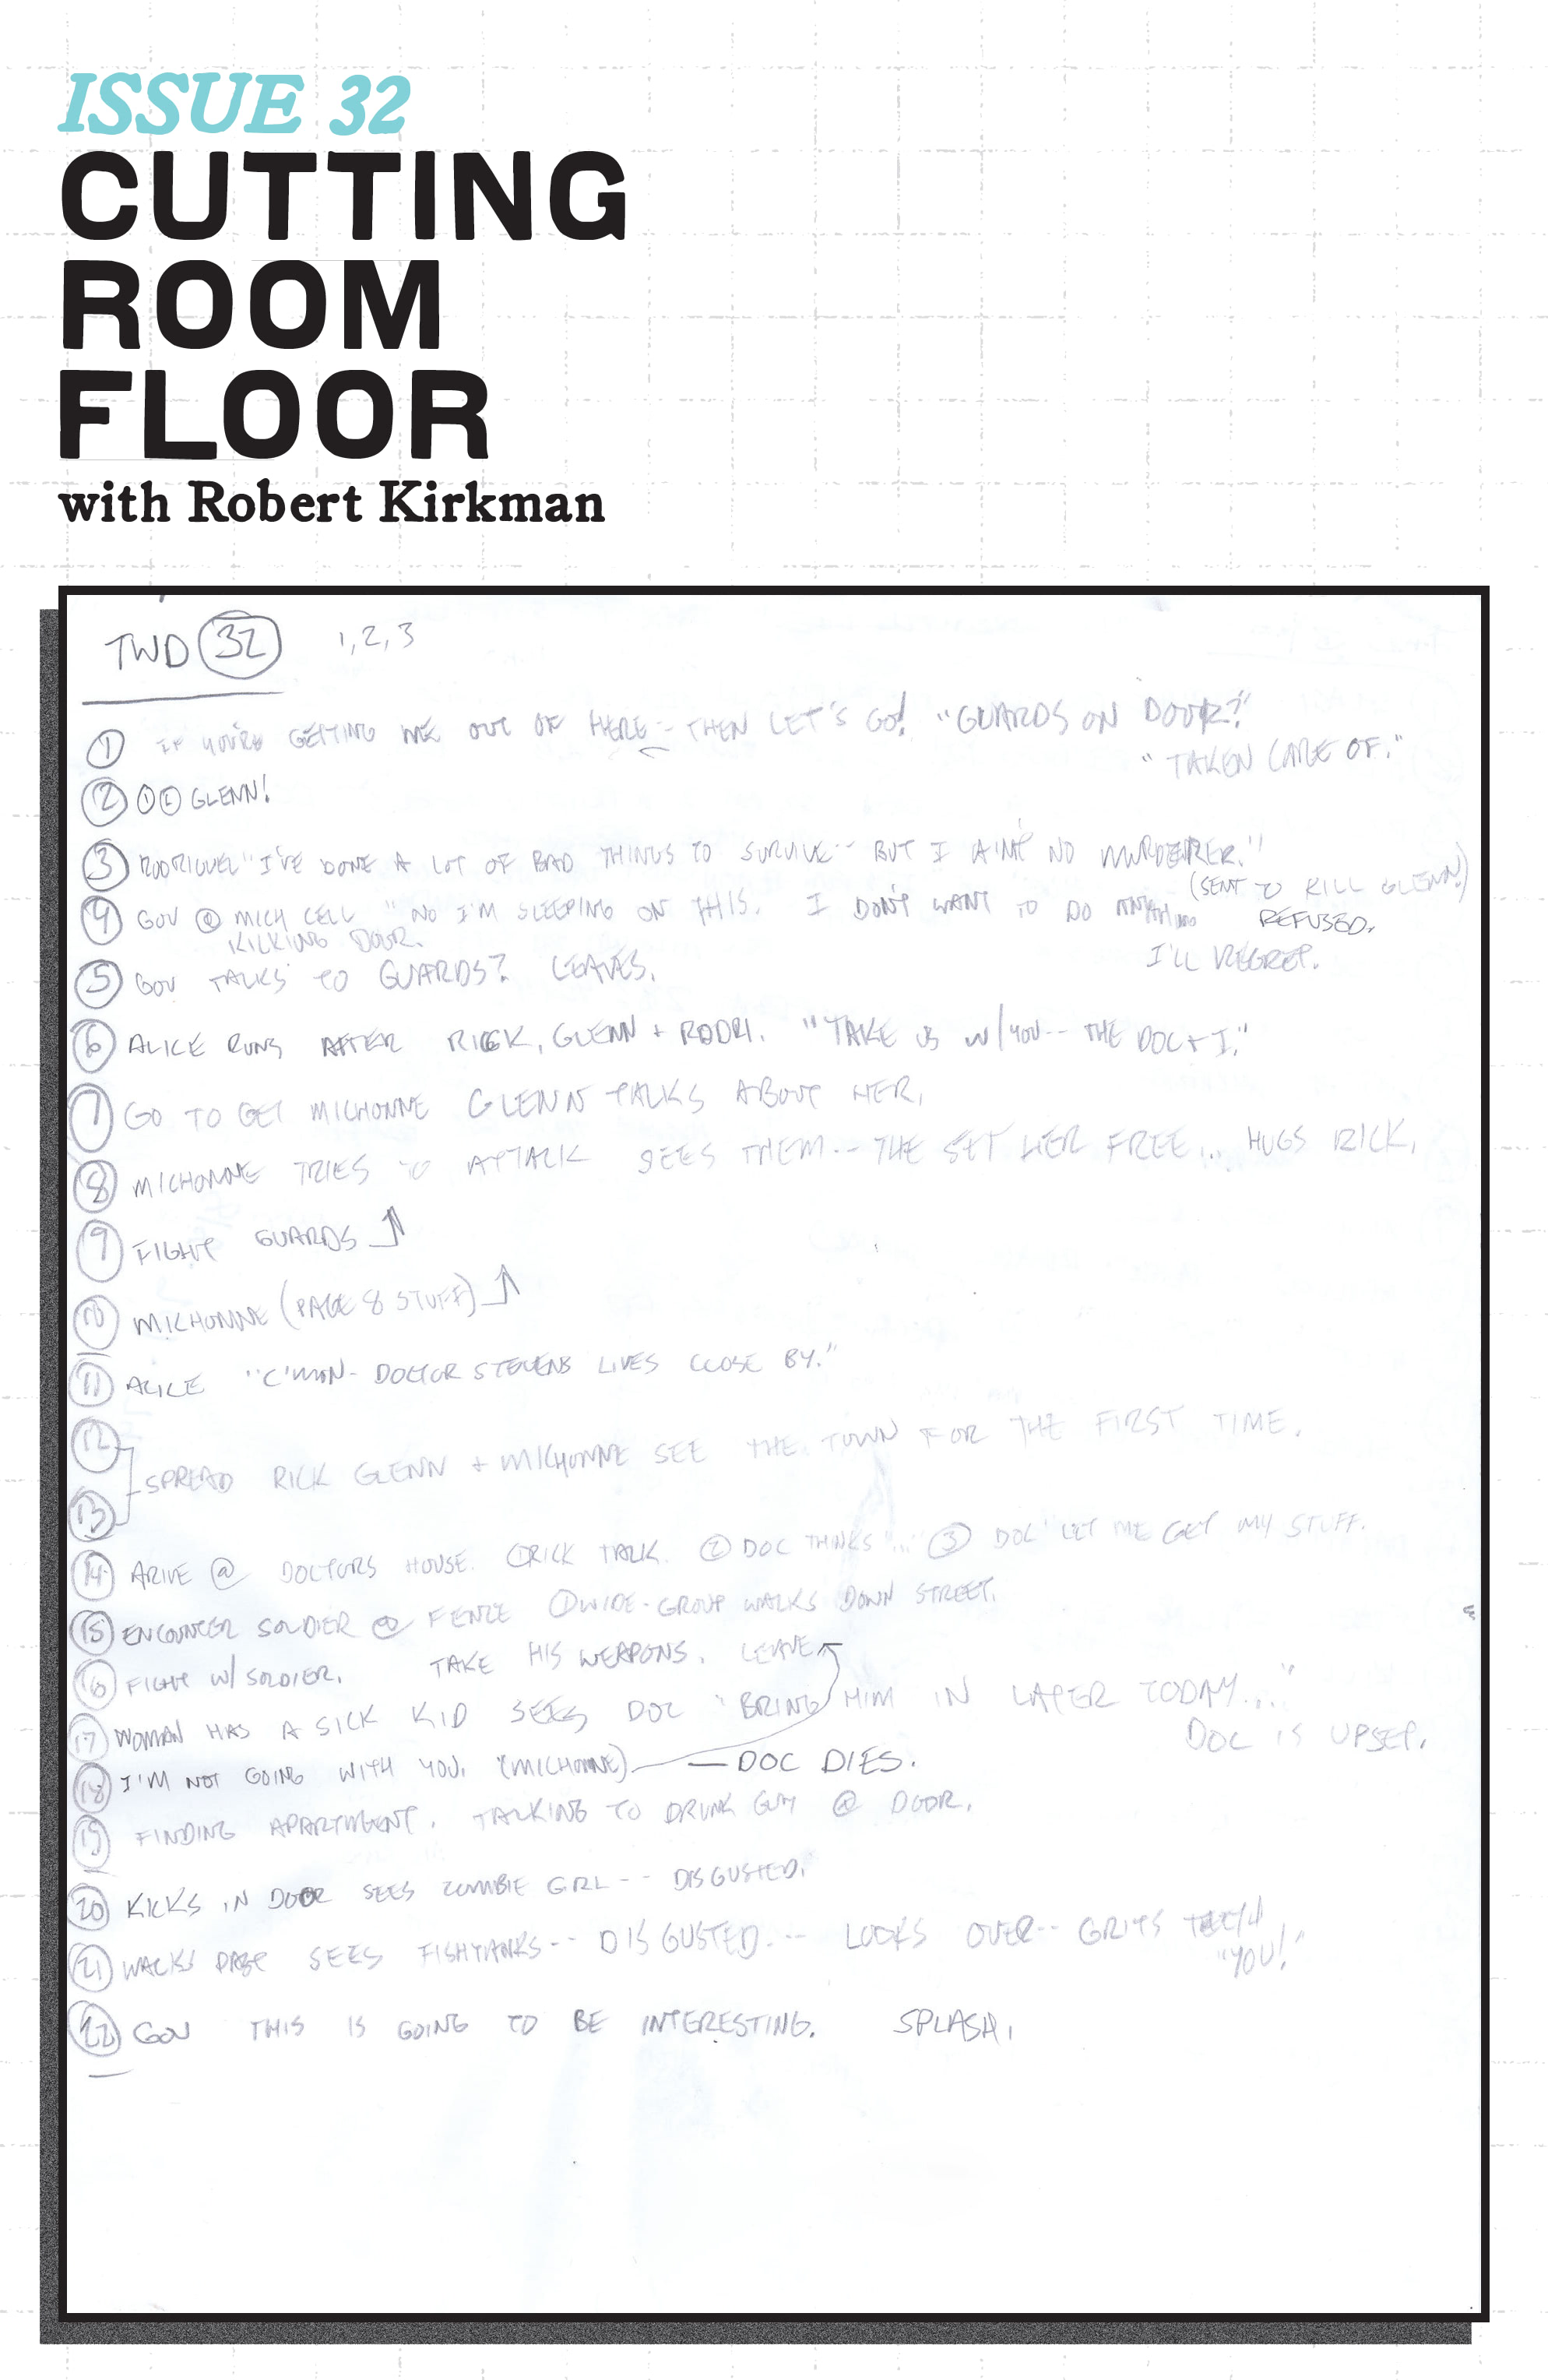 ISSUE 32
CUTTING
ROOM
FLOOR
with Robert Kirkman
TWD 32 1, 2, 3
1 IF YOU'RE GETTING ME OUT OF HERE-- THEN LET'S GO! "GUARDS ON DOOR?"
"TAKEN CARE OF."
2 GLENN!
3 "I'VE DONE A LOT OF BAD THINGS TO SURVIVE-- BUT I AIN'T NO MURDERER."
(SENT TO KILL GLENN!)
4 GOV @ MICH CELL "NO I'M SLEEPING ON THIS. I DON'T WANT TO DO REFUSED.
DOOR. I'LL REGRET.
5 GOV TALKS TO GUARDS? LEAVES.
6 ALICE RUNS AFTER RICK, GLENN + RODRI. "TAKE US W/YOU-- THE DOC + I."
7 GO TO GET MICHONNE GLENN TALKS ABOUT HER.
8 MICHONNE TRIES TO ATTACK SEES THEM-- THE SET HER FREE... HUGS RICK.
9 FIGHT GUARDS
10 MICHONNE (PAGE 8 STUFF)
11 ALICE "C'MON- DOCTOR STEVENS LIVES CLOSE BY."
12
SPREAD RICK GLENN + MICHONNE SEE THE TOWN FOR THE FIRST TIME.
13
14 ARIVE @ DOCTORS HOUSE. 1 RICK TALK. 2 DOC THINKS "..." 3 DOC "LET ME GET MY STUFF.
15 ENCOUNTER SOLDIER @ FENCE 1 WIDE- GROUP WALKS DOWN STREET.
16 FIGHT W/ SOLDIER. TAKE HIS WEAPONS. LEAVE
17 WOMAN HAS A SICK KID SEES DOC "BRING HIM IN LATER TODAY..."
DOC IS UPSET.
18 I'M NOT GOING WITH YOU. (MICHONNE) — DOC DIES.
19 FINDING APARTMENT. TALKING TO DRUNK GUY @ DOOR.
20 KICKS IN DOOR SEES ZOMBIE GIRL-- DISGUSTED.
21 WALKS PAST SEES FISHTANKS-- DISGUSTED--- LOOKS OVER-- GRITS TEETH
"YOU!"
22 GOV THIS IS GOING TO BE INTERESTING. SPLASH.